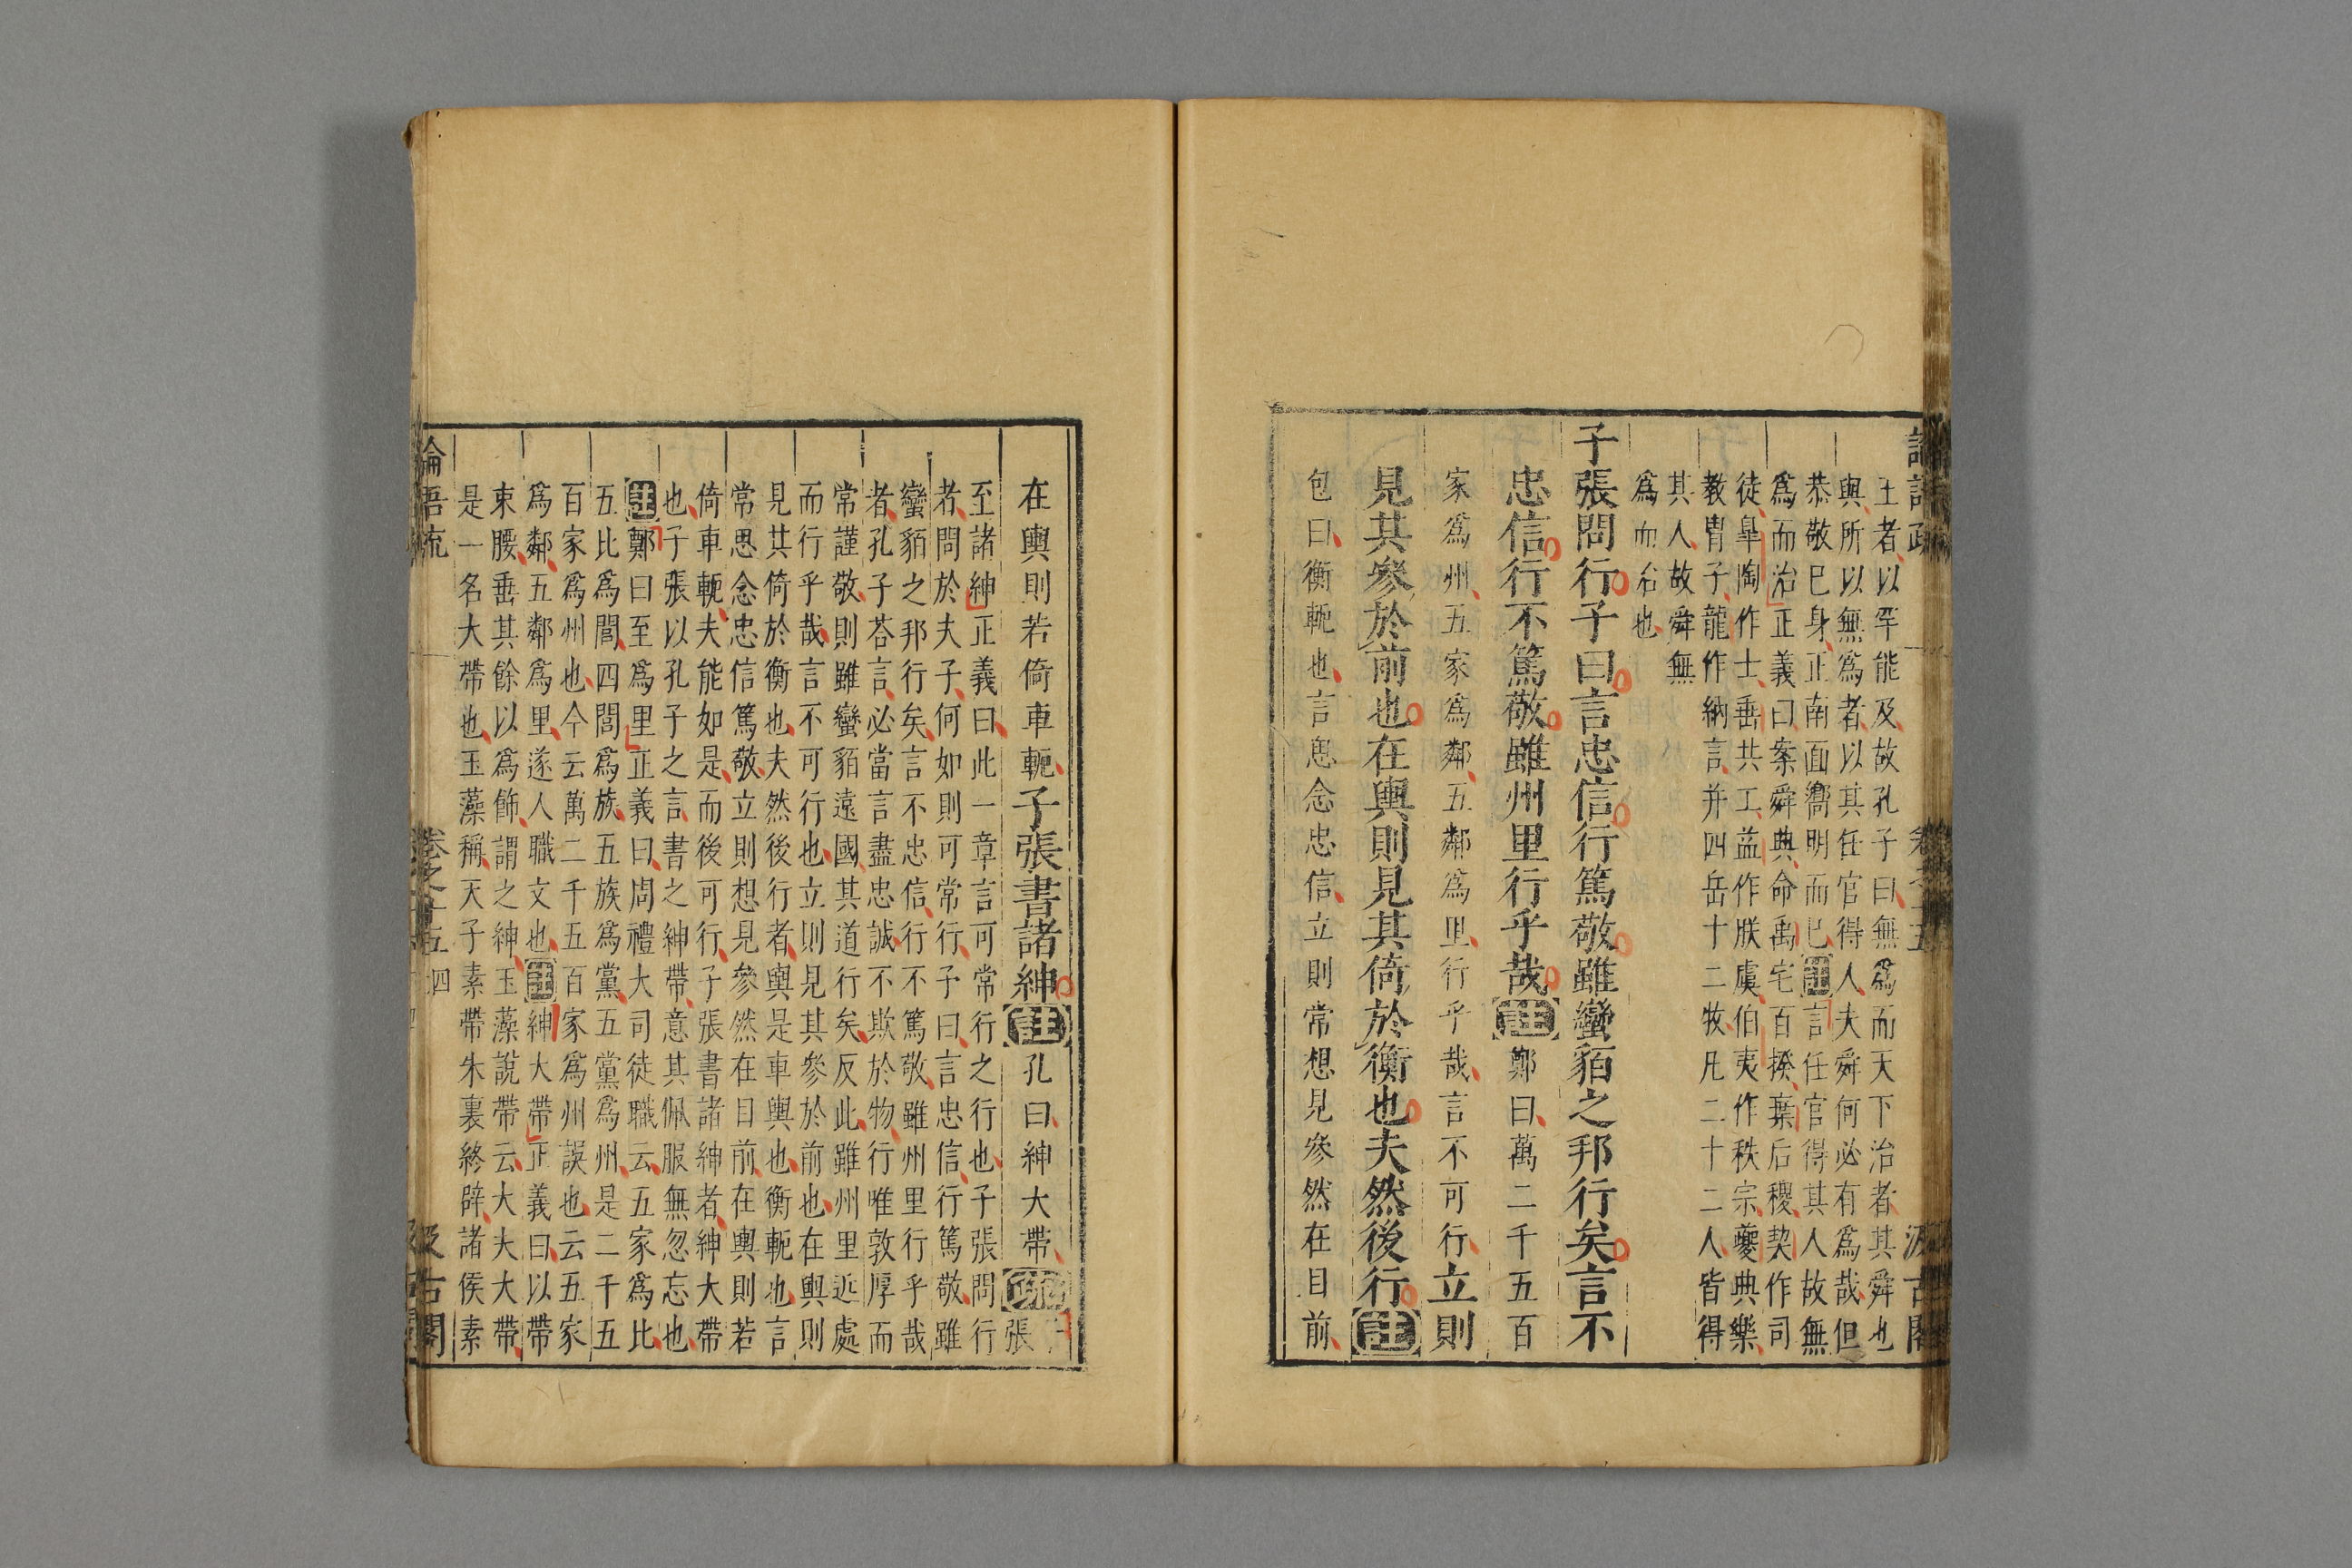 王者以罕能及故孔子曰無爲而天下治者其舜也
與所以無爲者以其任官得人夫舜何必有爲哉但
恭敬已身正南面嚮明而已註言任官得其人故無
爲而治正義曰案舜典命禹宅百揆棄后稷契作司
徒皐陶作士垂共工益作朕虞伯夷作秩宗夔典樂
教胄子龍作納言并四岳十二牧凡二十二人皆得
其人故舜無
爲而治也
子張問行子曰言忠信行篤敬雖蠻貊之邦行矣言不
忠信行不篤敬雖州里行乎哉註鄭曰萬二千五百
家爲州五家爲鄰五鄰爲里行乎哉言不可行立則
見其參於前也在輿則見其倚於衡也夫然後行註
包曰衡軛也言思念忠信立則常想見參然在目前
在輿則若倚車軛子張書諸紳註孔曰紳大帶疏子張
至諸紳正義曰此一章言可常行之行也子張問行
者問於夫子何如則可常行子曰言忠信行篤敬雖
蠻貊之邦行矣言不忠信行不篤敬雖州里行乎哉
者孔子荅言必當言盡忠誠不欺於物行唯敦厚而
常謹敬則雖蠻貊遠國其道行矣反此雖州里近處
而行乎哉言不可行也立則見其參於前也在輿則
見其倚於衡也夫然後行者輿是車輿也衡軛也言
常思念忠信篤敬立則想見參然在目前在輿則若
倚車軛夫能如是而後可行子張書諸紳者紳大帶
也子張以孔子之言書之紳帶意其佩服無忽忘也
註鄭曰至爲里正義曰周禮大司徒職云五家爲比
五比爲閭四閭爲族五族爲黨五黨爲州是二千五
百家爲州也今云萬二千五百家爲州誤也云五家
爲鄰五鄰爲里遂人職文也註紳大帶正義曰以帶
束腰垂其餘以爲飾謂之紳玉藻說帶云大夫大帶
是一名大帶也玉藻稱天子素帶朱裏終辟諸侯素
論語疏 卷之十五 四 汲古閣